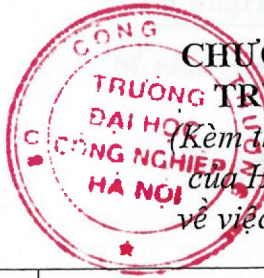 CÔNG THƯƠNG
TRƯỜNG
ĐẠI HỌC
CÔNG NGHIỆP
HÀ NỘI
CHƯƠ
TR
(Kèm th
của H
về việc